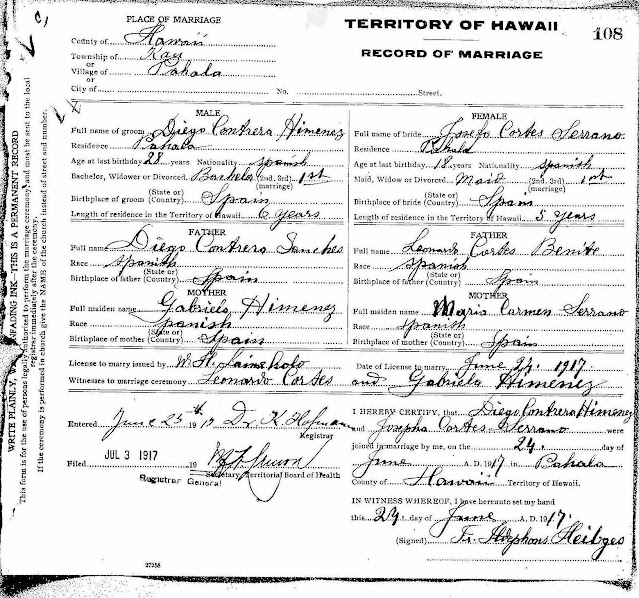 PLACE OF MARRIAGE
TERRITORY OF HAWAII
108
County of Hawaii
RECORD OF MARRIAGE
Township of Kau
or
Village of Pahala
or
City of
No.
Street.
MALE
FEMALE
Full name of groom Diego Contrera Himenez
Full name of bride Josefa Cortes Serrano
Residence Pahala
Residence Pahala
Age at last birthday 28 years Nationality Spanish
Age at last birthday 18 years Nationality Spanish
Bachelor, Widower or Divorced. Bachelor (2nd, 3rd) (marriage) 1st
Maid, Widow or Divorced. Maid (2nd, 3rd) (marriage) 1st
Birthplace of groom (State or) (Country) Spain
Birthplace of bride (State or) (Country) Spain
Length of residence in the Territory of Hawaii. 6 years
Length of residence in Territory of Hawaii. 5 years
FATHER
FATHER
Full name Diego Contrera Sanches
Full name Leonardo Cortes Benite
Race Spanish
Race Spanish
Birthplace of father (State or) (Country) Spain
Birthplace of father (State or) (Country) Spain
MOTHER
MOTHER
Full maiden name Gabriela Himenez
Full maiden name Maria Carmen Serrano
Race Spanish
Race Spanish
Birthplace of mother (State or) (Country) Spain
Birthplace of mother (State or) (Country) Spain
License to marry issued by W. H.
Date of License to marry June 24, 1917.
Witnesses to marriage ceremony Leonardo Cortes and Gabriela Himenez
Entered June 25th 19 17 Dr. K. Hofmann
Registrar
Filed JUL 3 1917 19
Secretary, Territorial Board of Health
Registrar General
I HEREBY CERTIFY, that Diego Contrera Himenez
and Josepha Cortes Serrano were
joined in marriage by me, on the 24. day of
June A. D. 1917 in Pahala
County of Hawaii Territory of Hawaii.
IN WITNESS WHEREOF, I have hereunto set my hand
this 24. day of June A. D. 1917.
(Signed) Fr. Ildephons Heitges
27258
WRITE PLAINLY, UNFADING INK—THIS IS A PERMANENT RECORD
This form is for the use of persons legally authorized to perform the marriage ceremony, and must be sent to the local
registrar immediately after the ceremony.
If the ceremony is performed in church give the NAME of the church instead of street and number.